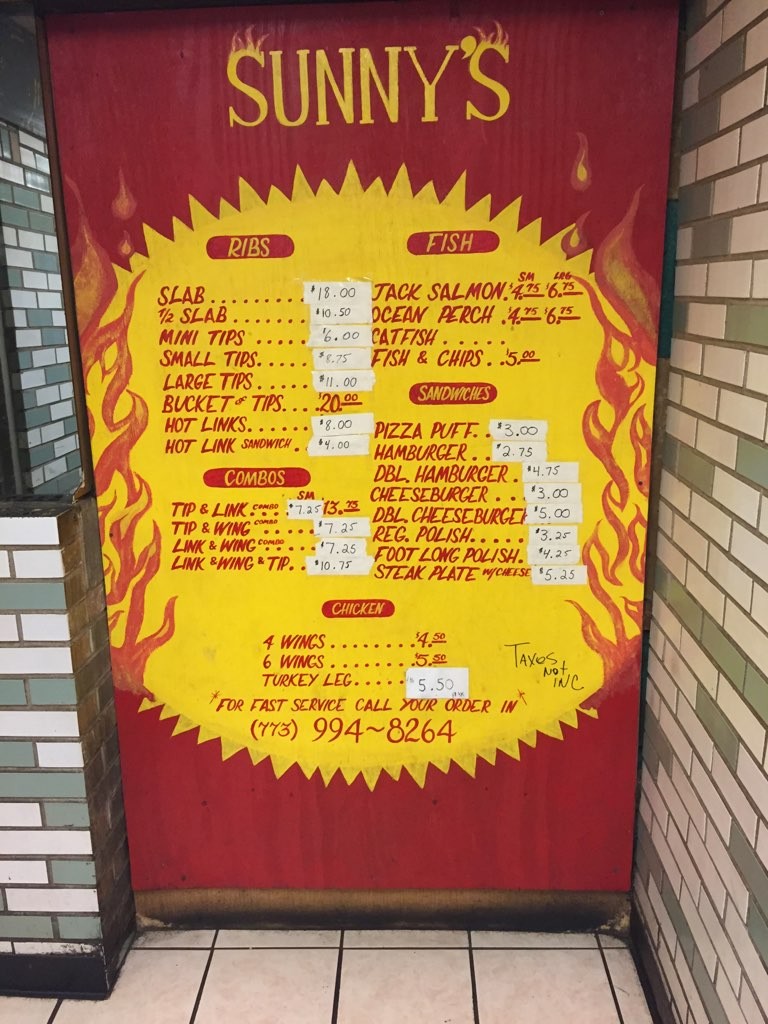 SUNNY'S
RIBS
SLAB........ $18.00
1/2 SLAB........ $10.50
MINI TIPS...... $6.00
SMALL TIPS..... $8.75
LARGE TIPS..... $11.00
BUCKET OF TIPS... $20.00
HOT LINKS...... $8.00
HOT LINK SANDWICH. $4.00
COMBOS
SM
TIP & LINK COMBO $7.25 13.75
TIP & WING COMBO..... $7.25
LINK & WING COMBO... $7.25
LINK & WING & TIP.. $10.75
FISH
SM LRG
JACK SALMON. $4.75 $6.75
OCEAN PERCH .$4.75 $6.75
CATFISH .....
FISH & CHIPS ..$5.00
SANDWICHES
PIZZA PUFF.. $3.00
HAMBURGER.. $2.75
DBL. HAMBURGER. $4.75
CHEESEBURGER... $3.00
DBL. CHEESEBURGER $5.00
REG. POLISH..... $3.25
FOOT LONG POLISH. $4.25
STEAK PLATE W/CHEESE $5.25
CHICKEN
4 WINGS ........ $4.50
6 WINGS ........ $5.50
TURKEY LEG..... $5.50
TAXES NOT INC
"FOR FAST SERVICE CALL YOUR ORDER IN"
(773) 994~8264